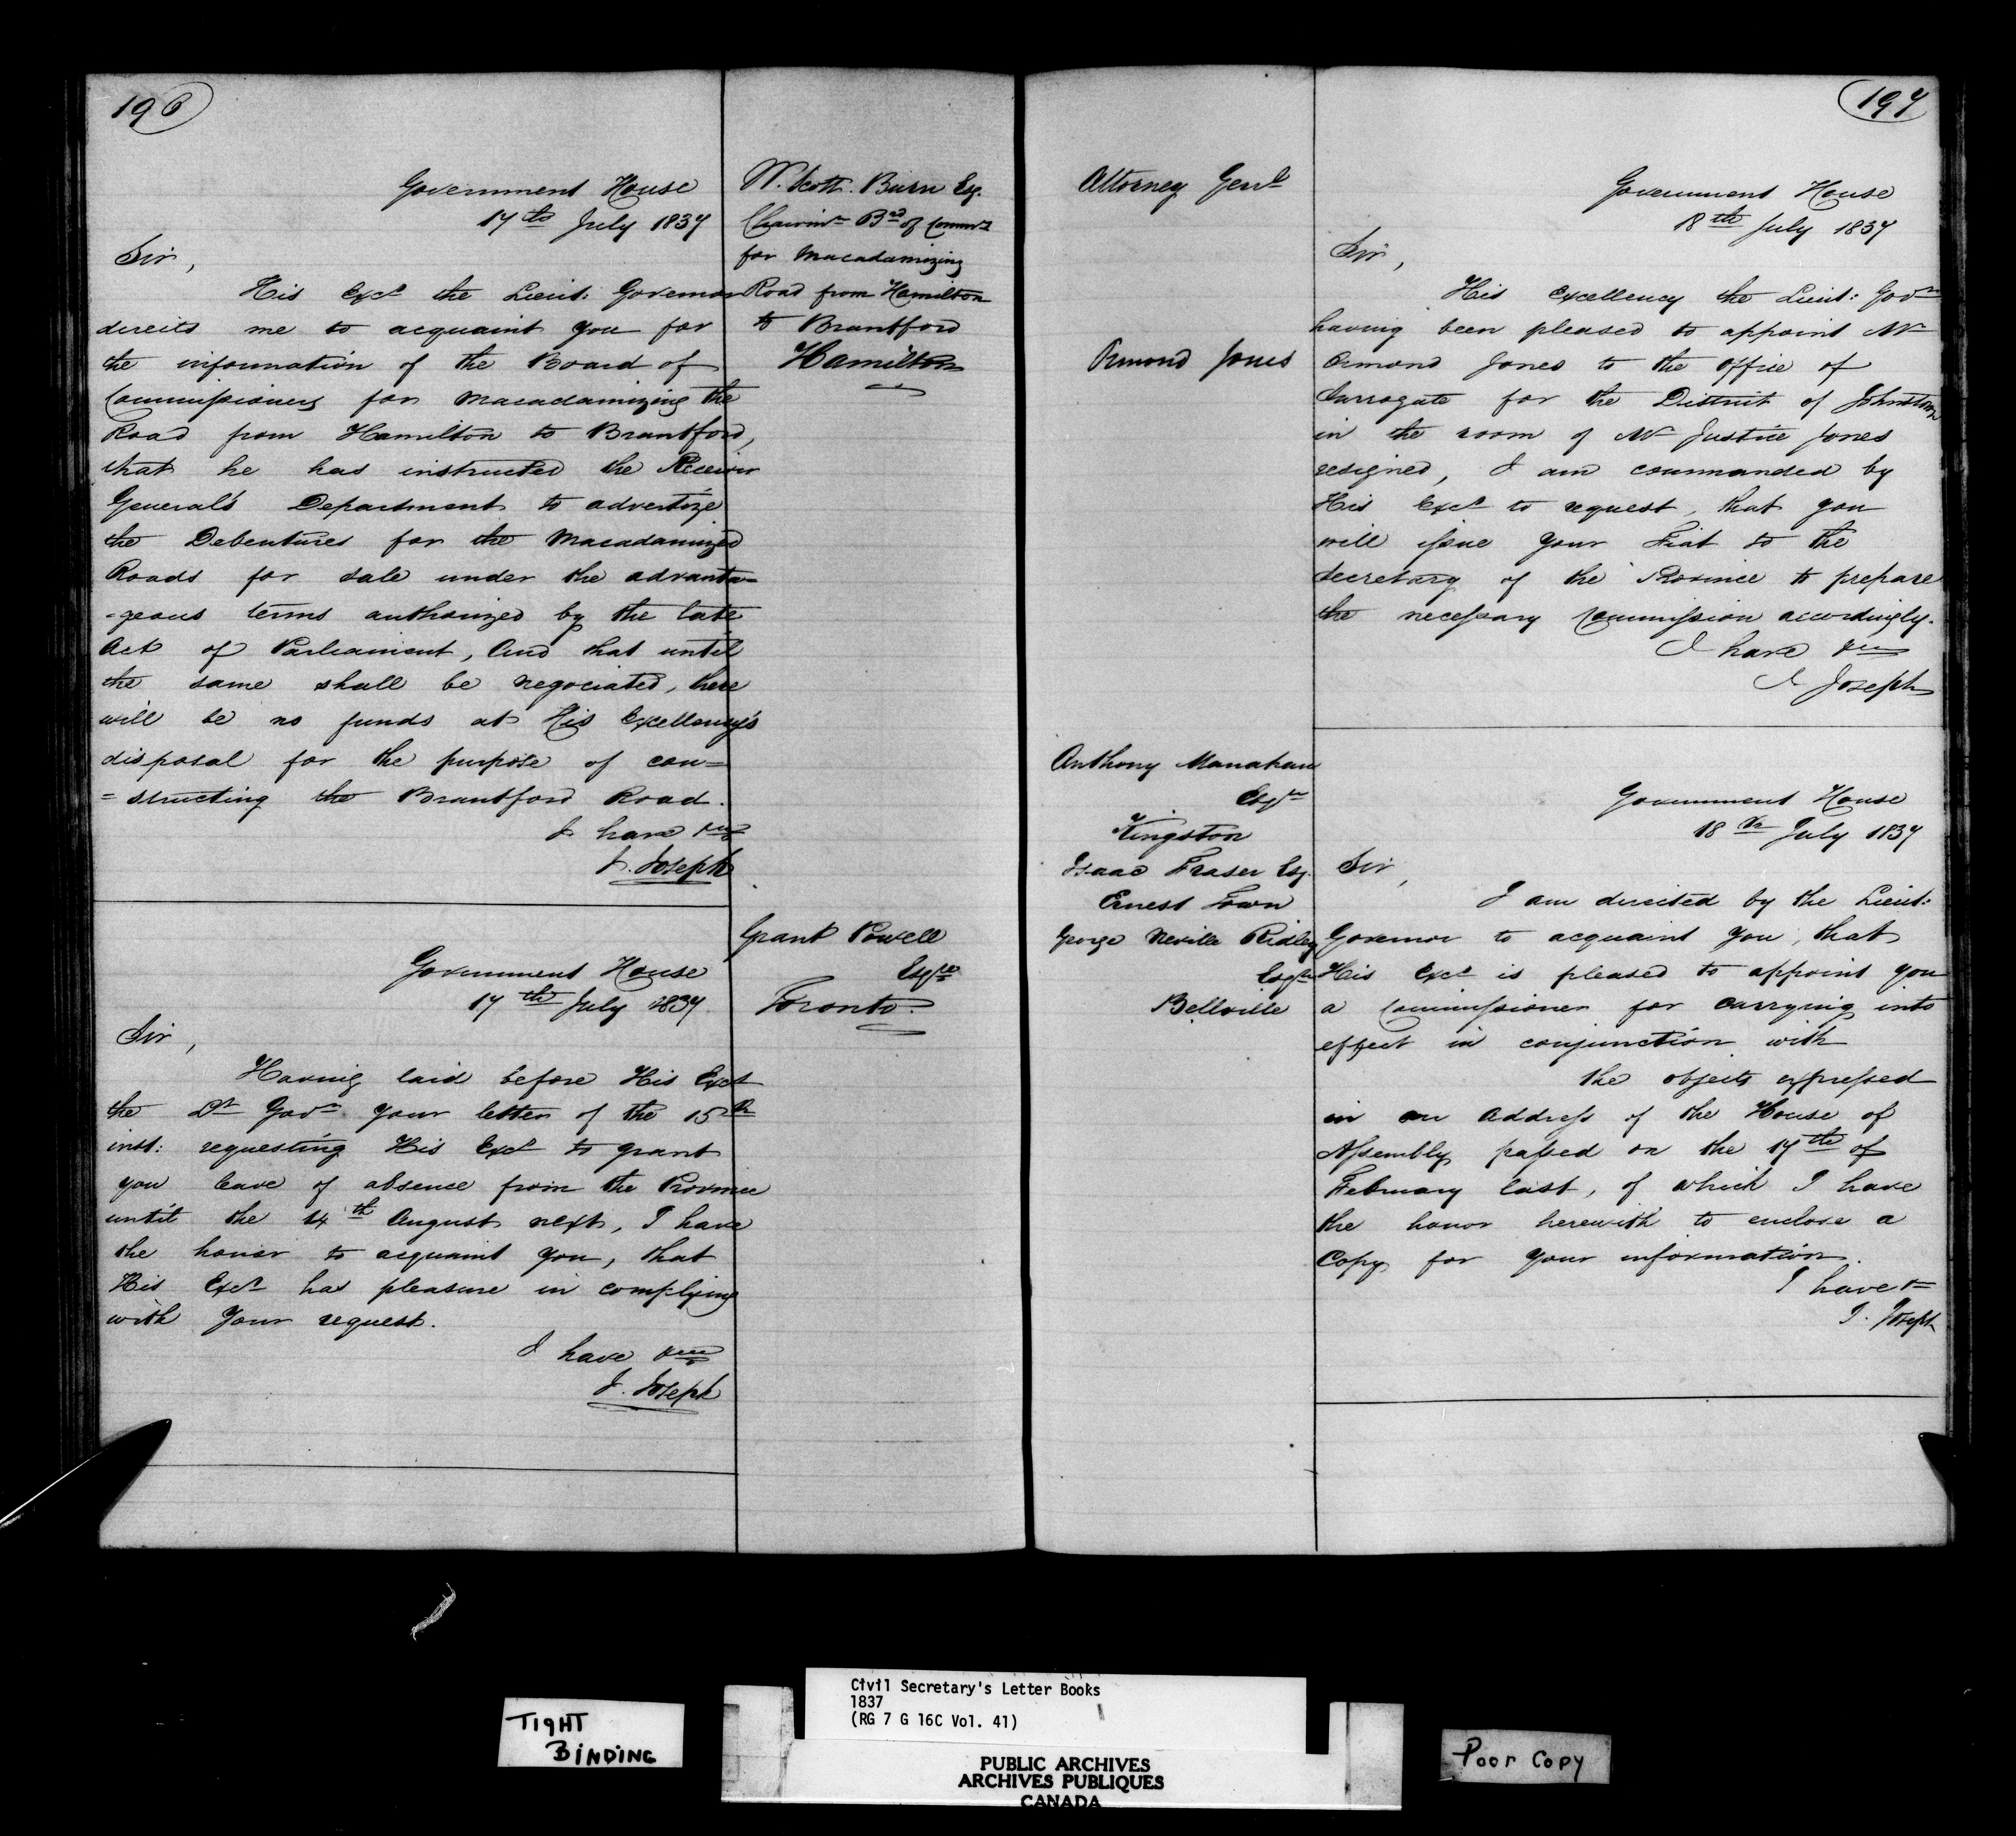 196
Government House
17th July 1837
Sir,
His Excy the Lieut: Governor
directs me to acquaint you for
the information of the Board of
Commissioners for Macadamizing the
Road from Hamilton to Brantford,
that he has instructed the Receiver
General's Department to advertize
the Debentures for the Macadamized
Roads for sale under the advanta=
=geous terms authorized by the late
Act of Parliament, And that until
the same shall be negociated, there
will be no funds at His Excellency's
disposal for the purpose of con=
=structing the Brantford Road.
I have &c
J. Joseph
W. Scott. Burn Esq.
Chairmn Bd of Commrs
for Macadamizing
Road from Hamilton
to Brantford
Hamilton
Government House
17th July 1837.
Sir,
Having laid before His Excy
the Lt Govr your letter of the 15th
inst: requesting His Excy to grant
you leave of absence from the Province
until the 14th August next, I have
the honor to acquaint you, that
His Excy has pleasure in complying
with your request.
I have &c
J. Joseph
Grant Powell
Esqre
Toronto.
197
Attorney Genl
Ormond Jones
Government House
18th July 1837
Sir,
His Excellency the Lieut: Govr
having been pleased to appoint Mr
Ormond Jones to the office of
Surrogate for the District of Johnstown
in the room of Mr Justice Jones
resigned, I am commanded by
His Excy to request, that you
will issue your Fiat to the
Secretary of the Province to prepare
the necessary Commission accordingly.
I have &c
J. Joseph
Anthony Manahan
Esqre
Kingston
Isaac Fraser Esq.
Ernest Town
George Neville Ridley
Esqre
Bellville
Government House
18th July 1837
Sir,
I am directed by the Lieut:
Governor to acquaint you, that
His Excy is pleased to appoint you
a Commissioner for carrying into
effect in conjunction with
the objects expressed
in an Address of the House of
Assembly passed on the 17th of
February last, of which I have
the honor herewith to enclose a
Copy for your information.
I have &c
J. Joseph
TIGHT
BINDING
Civil Secretary's Letter Books
1837
(RG 7 G 16C Vol. 41)
PUBLIC ARCHIVES
ARCHIVES PUBLIQUES
CANADA
Poor Copy